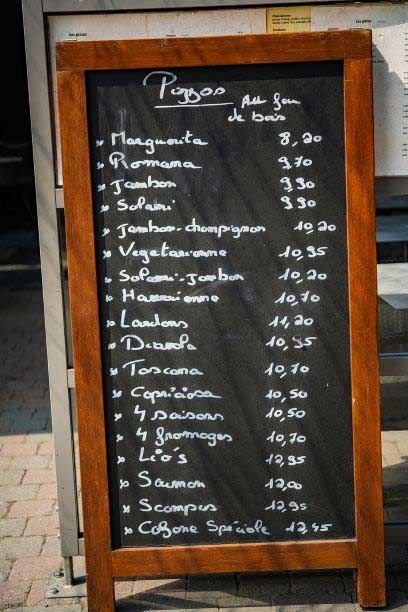 Pizzas Au feu
de bois
Marguerita 8,20
Romana 9,70
Jambon 9,90
Salami 9,90
Jambon-champignon 10,20
Vegetarienne 10,95
Salami-Jambon 10,20
Hawaienne 10,70
Lardons 11,20
Diavola 10,95
Toscana 10,70
Capricciosa 10,50
4 saisons 10,50
4 fromages 10,70
Lio's 12,95
Saumon 12,00
Scampis 12,95
Calzone Spéciale 12,45